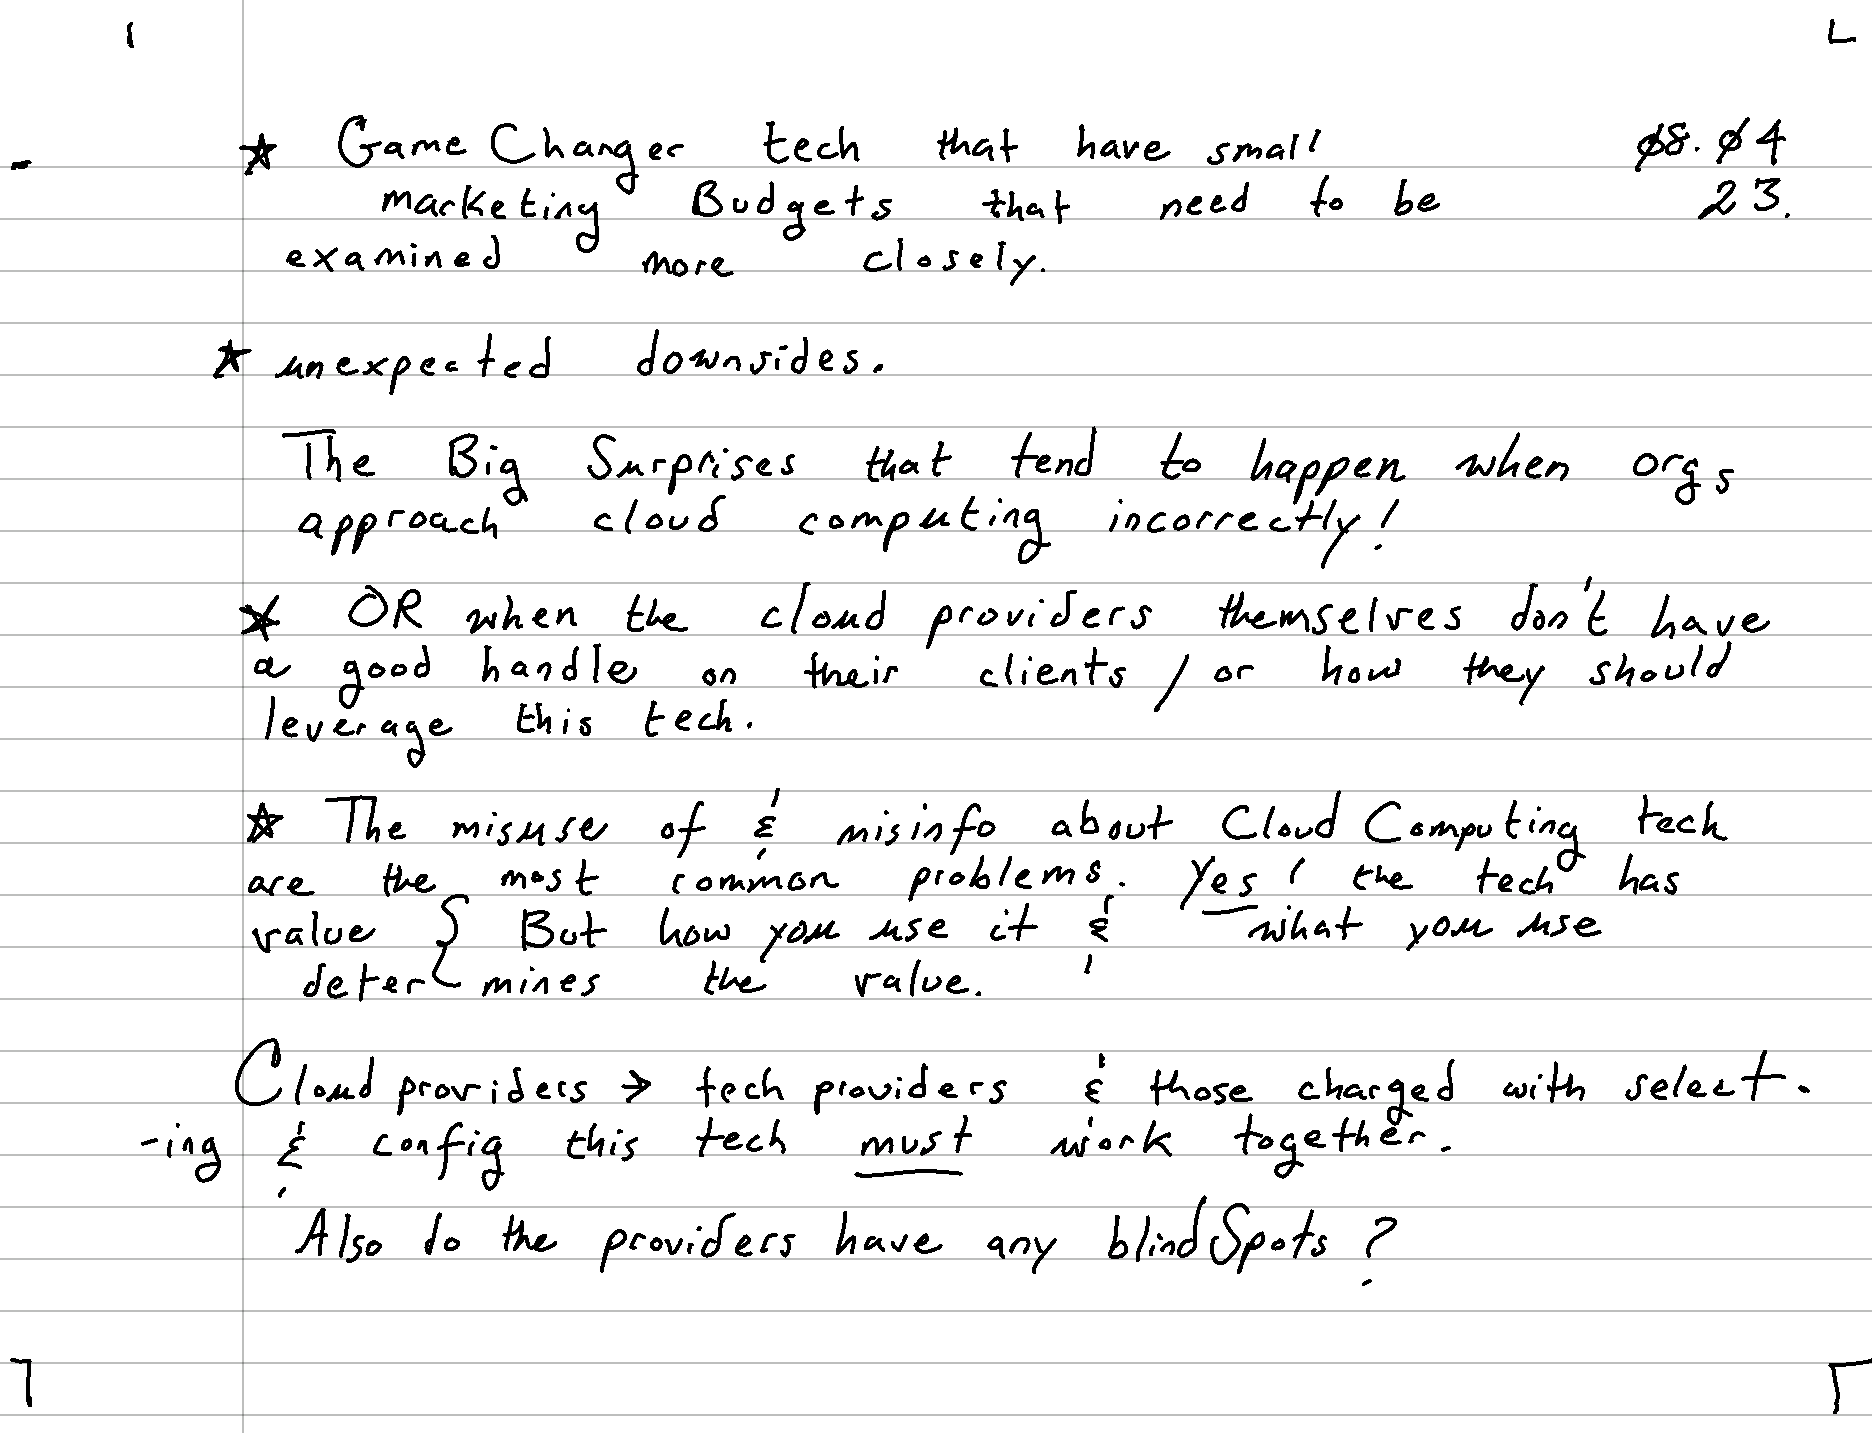 ★ Game Changer tech that have small 08.04
marketing Budgets that need to be 23.
examined more closely.
★ unexpected downsides.
The Big Surprises that tend to happen when orgs
approach cloud computing incorrectly!
★ OR when the cloud providers themselves don't have
a good handle on their clients / or how they should
leverage this tech.
★ The misuse of & misinfo about Cloud Computing tech
are the most common problems. Yes! the tech has
value { But how you use it & what you use
determines the value.
Cloud providers → tech providers & those charged with select.
-ing & config this tech must work together.
Also do the providers have any blindSpots?